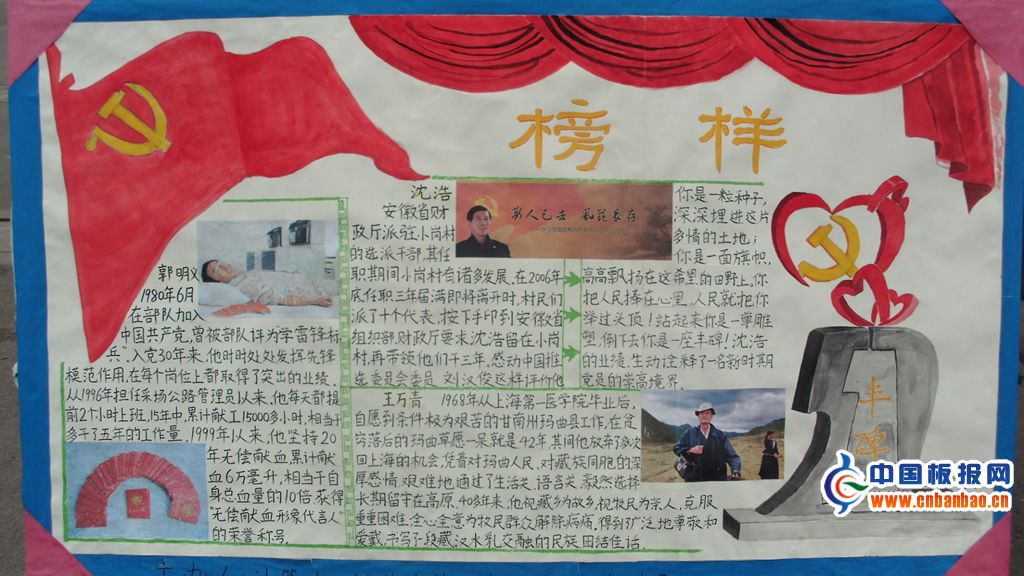 榜样
郭明义
1980年6月
在部队加入
中国共产党,曾被部队评为学雷锋标
兵、入党30年来,他时时处处发挥先锋
模范作用,在每个岗位上都取得了突出的业绩。
从1996年担任采场公路管理员以来,他每天都提
前2个小时上班,15年中,累计献工15000多小时,相当于
多干了五年的工作量。1999年以来,他坚持20
年无偿献血累计献
血6万毫升,相当于自
身总血量的10倍获得
"无偿献血形象代言人"
的荣誉称号。
沈浩
安徽省财
政厅派驻小岗村
的选派干部,其任
职期间小岗村有诸多发展,在2006年
底任职三年届满即将离开时,村民们
派了十个代表,按下手印到安徽省
组织部财政厅要求沈浩留在小岗
村,再带领他们干三年,感动中国推
选委员会委员 刘汉俊这样评价他
斯人已去 风范长存
你是一粒种子,
深深埋进这片
多情的土地;
你是一面旗帜,
高高飘扬在这希望的田野上。你
把人民捧在心里,人民就把你
举过头顶!站起来你是一尊雕
塑,倒下去你是一座丰碑!沈浩
的业绩,生动诠释了一名新时期
党员的崇高境界
王万青 1968年从上海第一医学院毕业后,
自愿到条件极为艰苦的甘南州玛曲县工作,在定
穷落后的玛曲草原一呆就是42年,其间他放弃了多次
回上海的机会,凭着对玛曲人民,对藏族同胞的深
厚感情,艰难地通过了生活关,语言关,毅然选择
长期留守在高原,40多年来,他视藏乡为故乡,视牧民为亲人,克服
重重困难,全心全意为牧民群众解除病痛,得到了广泛地尊敬和
爱戴,书写了段藏汉水乳交融的民族团结佳话。
丰碑
中国板报网
www.cnbanbao.cn